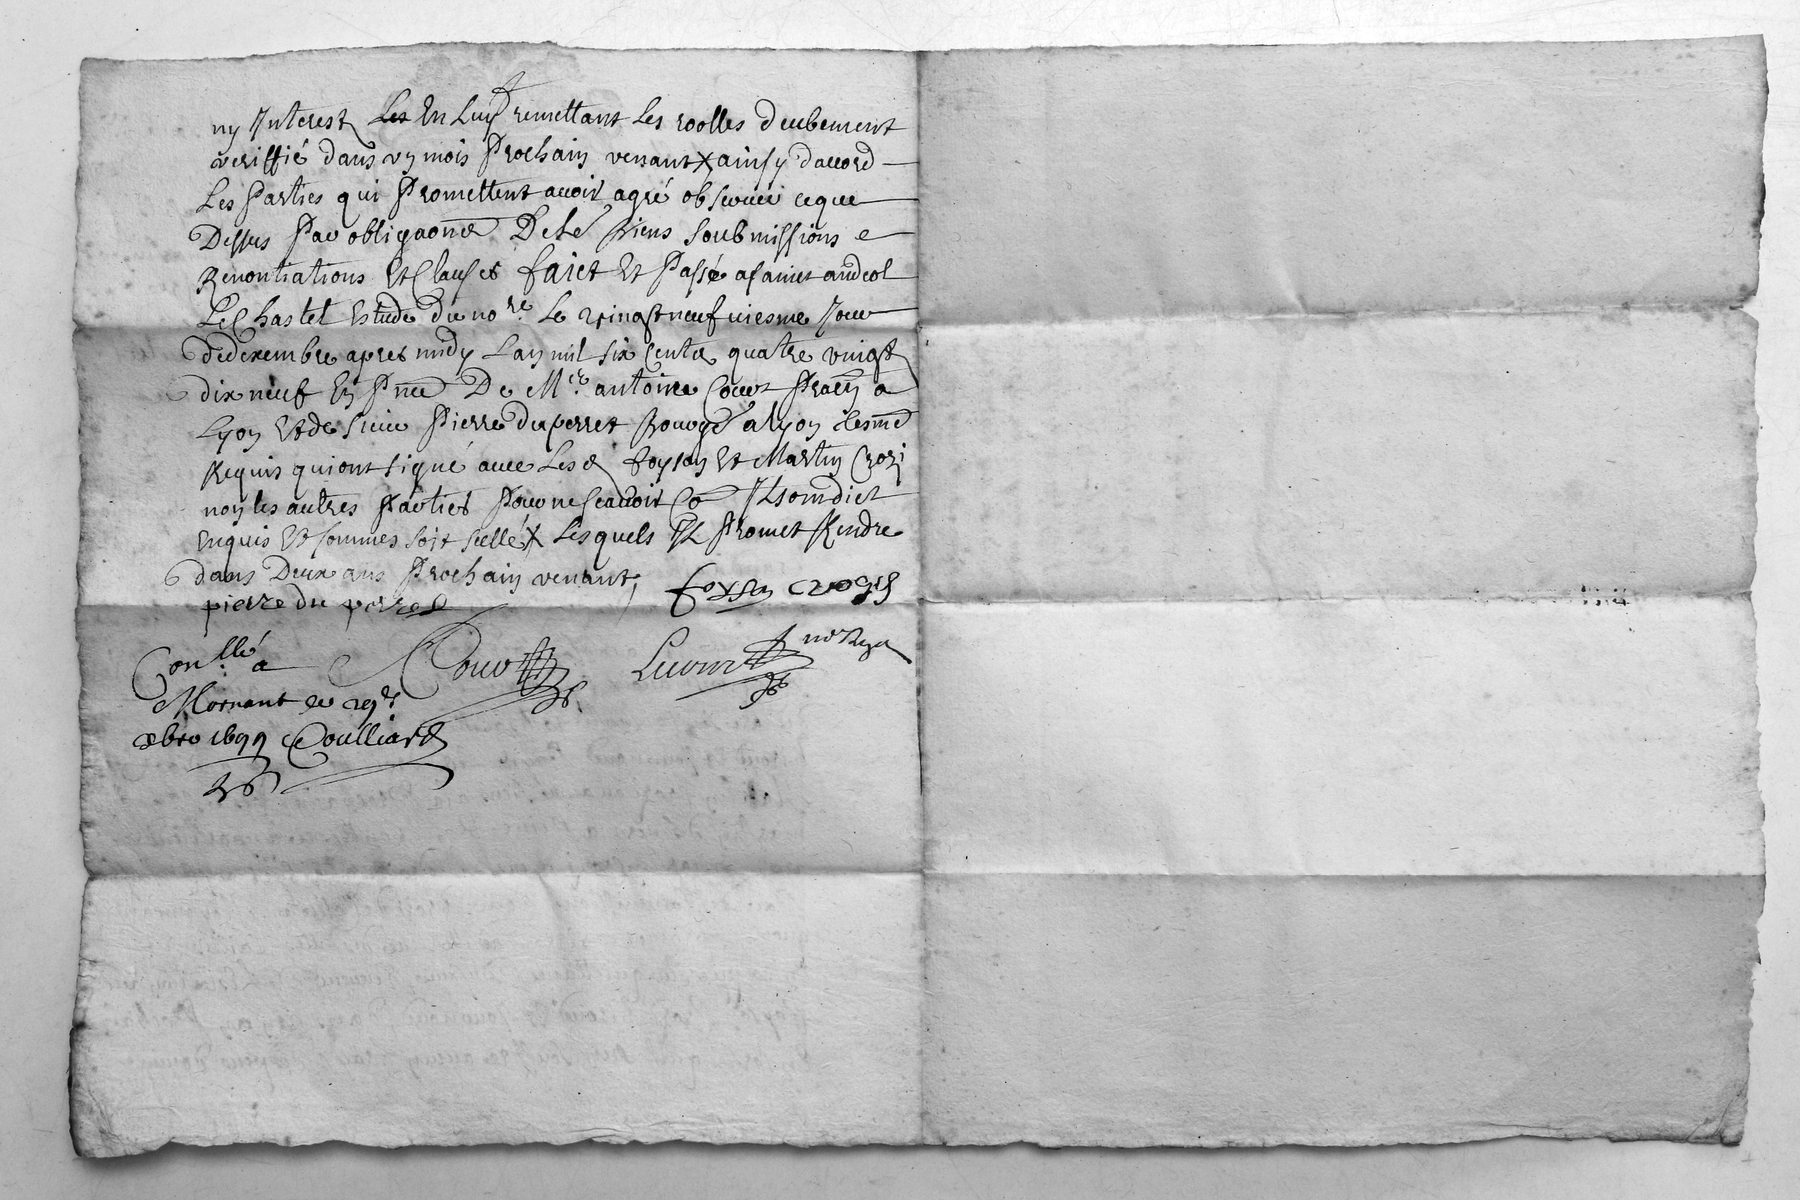 ny Interest Les En Luy remettant Les roolles deubement
veriffié dans un mois Prochain venant X ainsy d'accord
Les Parties qui Promettent avoir agré observer ceque
Dessus Par obligaons De Biens Soubmissions
Renontiations Et Clauses faict Et Passé a Sainct andeol
Le Chastel Estude du no.re Le vingt neufviesme Jour
de decembre apres midy Lan mil six Cents quatre vingt
dix neuf En Pnce De Me antoine Court a
Lyon Et de sieur Pierre du perret a lyon
Requis qui ont signé avec Lesd foyson Et Martin Crozi
non les autres Parties Pour ne scavoir Co Ilz ont dict
enquis Et sommes soit scellé X Lesquels Il Promet Rendre
dans Deux ans Prochain venant,
pierre du perret
Con.llé a
Mornant le 29e
xbre 1699 Coulliard